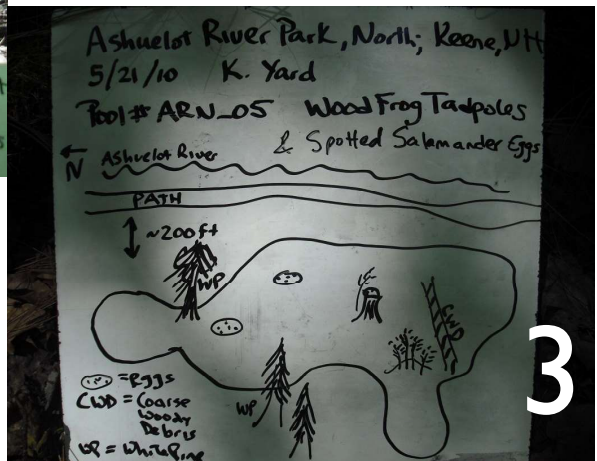 Ashuelot River Park, North; Keene, NH
5/21/10 K. Yard
Pool# ARN_05 Wood Frog Tadpoles
& Spotted Salamander Eggs
N Ashuelot River
PATH
~200ft
WP
CWD
WP
= Eggs
CWD = Coarse
Woody
Debris
WP = White Pine
3